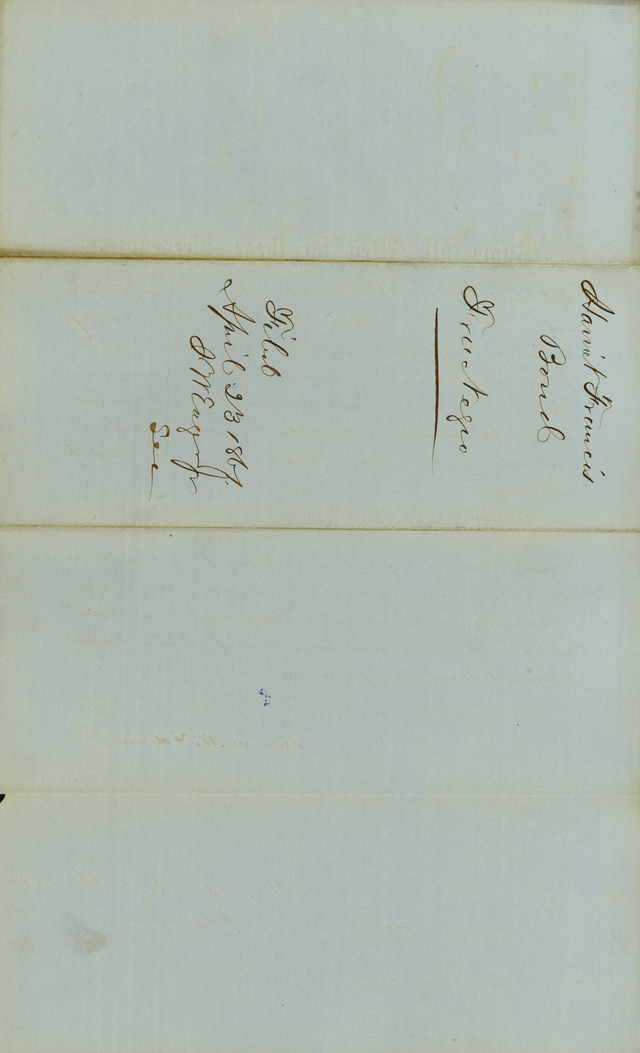 Harriet Francis
Bond
Free Negro
Filed
April 23 1861.